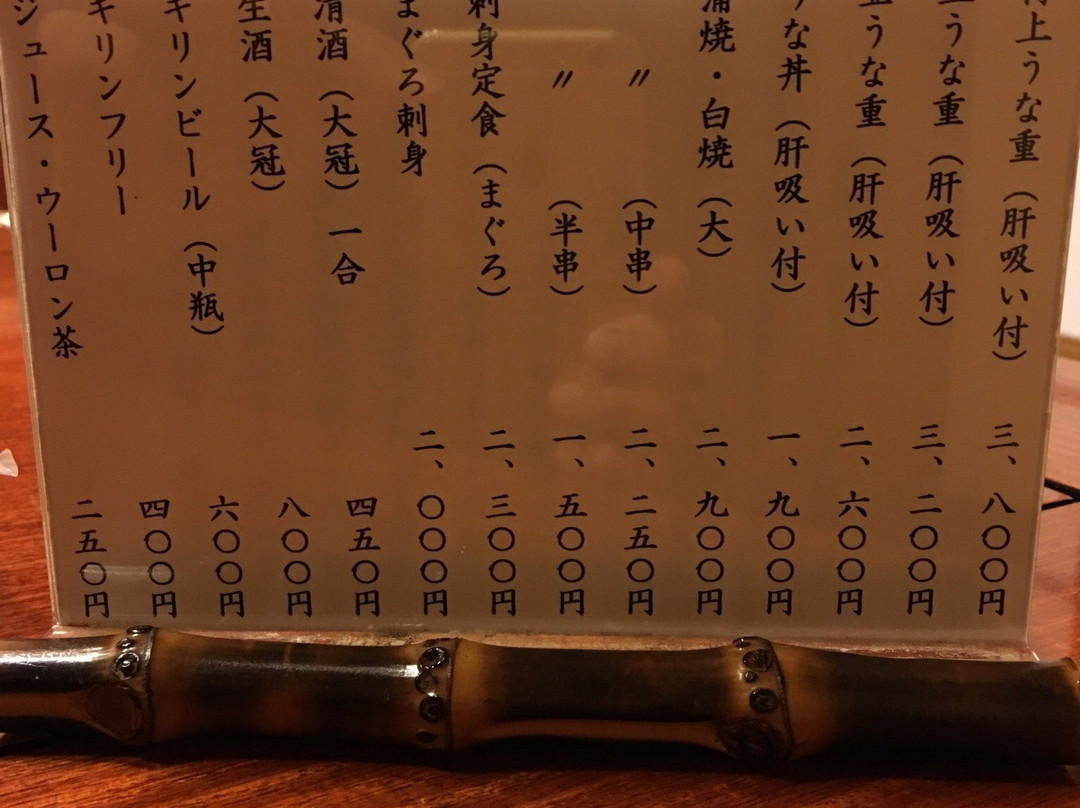 上うな重（肝吸い付） 三、八〇〇円
うな重（肝吸い付） 三、二〇〇円
うな重（肝吸い付） 二、六〇〇円
うな丼（肝吸い付） 一、九〇〇円
蒲焼・白焼（大） 二、九〇〇円
〃（中串） 二、二五〇円
〃（半串） 一、五〇〇円
刺身定食（まぐろ） 二、三〇〇円
まぐろ刺身 二、〇〇〇円
清酒（大冠）一合 四五〇円
生酒（大冠） 八〇〇円
キリンビール（中瓶） 六〇〇円
キリンフリー 四〇〇円
ジュース・ウーロン茶 二五〇円